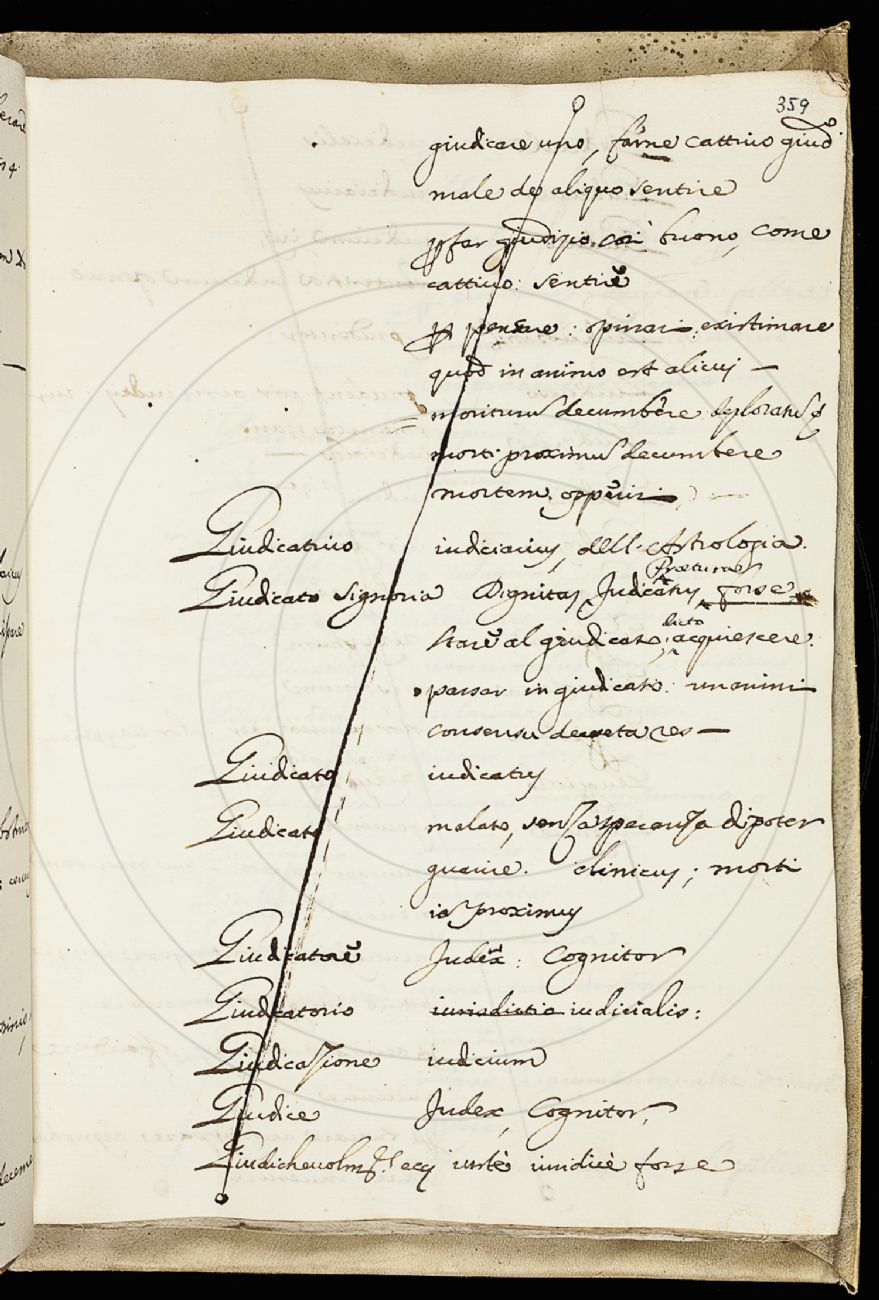 359
giudicare uno, farne cattivo giud.o
male de aliquo sentire
far giudizio, cosi buono, come
cattivo: sentire
pensare: opinari: existimare
quod in animo est alicuj —
= moriturus decumbere deploratus
morti proximus decumbere
mortem oppeivi
Giudicativo iudiciarius, dell'Astrologia.
Giudicato signoria Dignitas Judicatus Praeturae forse
stare al giudicato: dicto acquiescere:
passar in giudicato: unanimi
consensu decreta res —
Giudicato iudicatus
Giudicato malato, senza speranza di poter
guarire. clinicus; morti
iam proximus
Giudicatore Judex: Cognitor
Giudicatorio iurisdictio iudicialis:
Giudicazione iudicium
Giudice Judex, Cognitor,
iustè iuridicè forse